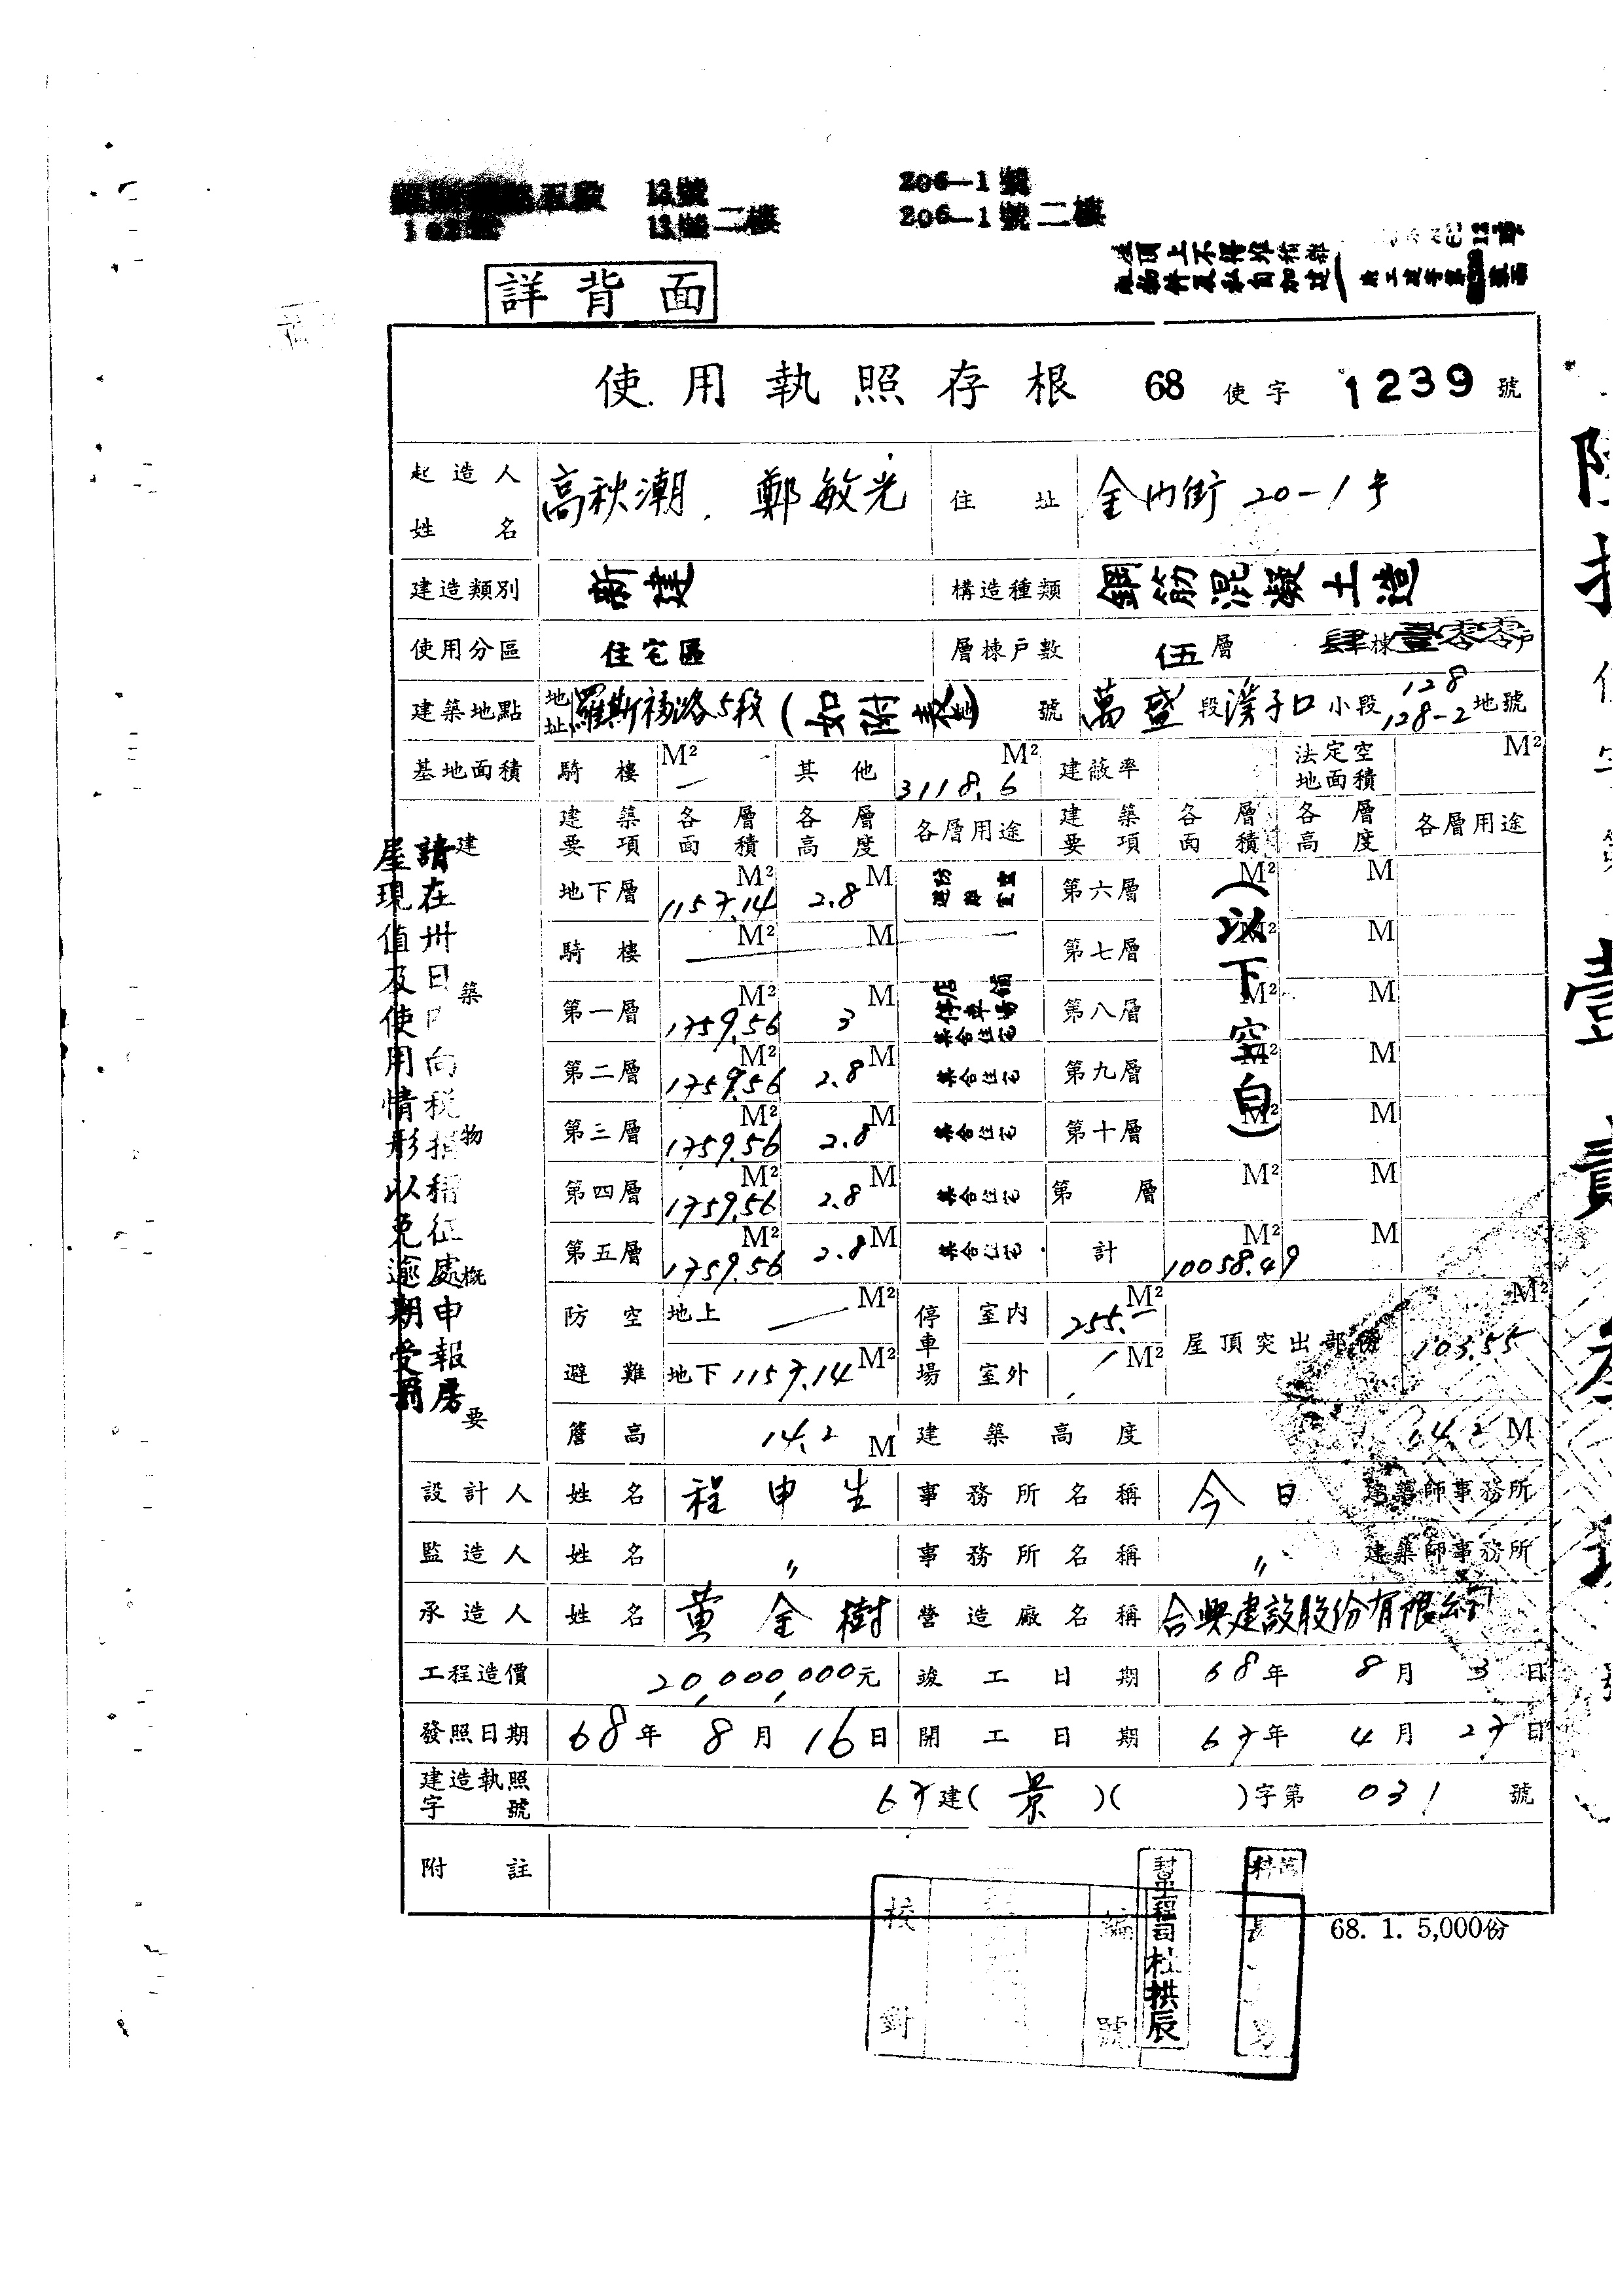 13號 206-1號
13號二樓 206-1號二樓
詳背面
使用執照存根 68 使字 1239 號
起造人姓名 高秋潮、鄭敏光 住址 金門街20-1号
建造類別 新建 構造種類 鋼筋混凝土造
使用分區 住宅區 層棟戶數 伍層 肆棟壹零零戶
建築地點 地址 羅斯福路5段(如附表) 地號 萬盛段溪子口小段 128 128-2 地號
基地面積 騎樓 M² — 其他 3118.6 M² 建蔽率 法定空地面積 M²
建築物概要
建築要項 各層面積 各層高度 各層用途 建築要項 各層面積 各層高度 各層用途
地下層 1157.14 M² 2.8 M 第六層 M² M
騎樓 M² M 第七層 M² M
第一層 1759.56 M² 3 M 店舖 停車場 集合住宅 第八層 M² M
第二層 1759.56 M² 2.8 M 集合住宅 第九層 M² M
第三層 1759.56 M² 2.8 M 集合住宅 第十層 M² M
第四層 1759.56 M² 2.8 M 集合住宅 第 層 M² M
第五層 1759.56 M² 2.8 M 集合住宅 計 10058.49 M² M
(以下空白)
防空避難 地上 — M² 停車場 室內 255.— M² 屋頂突出部份 103.55 M²
地下 1157.14 M² 室外 / M²
簷高 14.2 M 建築高度 14.2 M
設計人 姓名 程申生 事務所名稱 今日 建築師事務所
監造人 姓名 〃 事務所名稱 〃 建築師事務所
承造人 姓名 黃金樹 營造廠名稱 合興建設股份有限公司
工程造價 20,000,000元 竣工日期 68年 8月 3日
發照日期 68年 8月 16日 開工日期 67年 4月 27日
建造執照字號 67建(景)( )字第 031 號
附註
請在卅日內向稅捐稽征處申報房
屋現值及使用情形以免逾期受罰
校對 編號
杜拱辰
68. 1. 5,000份